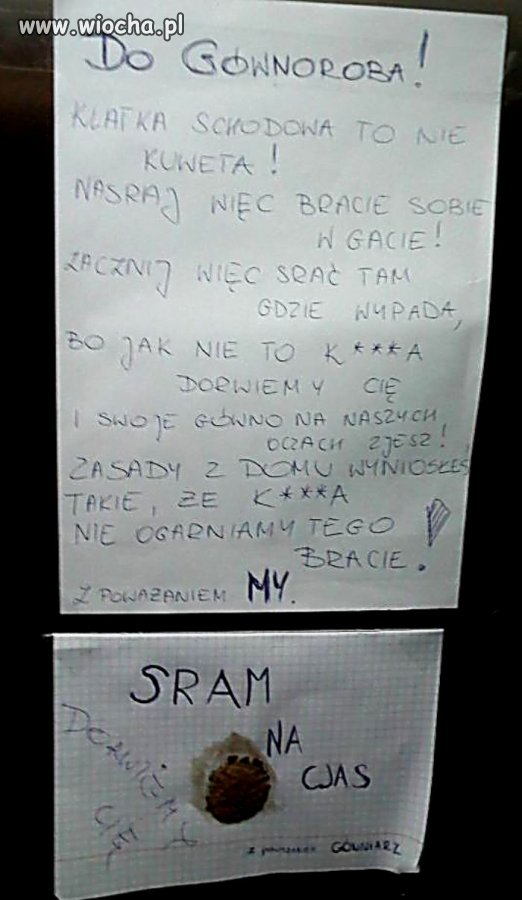 www.wiocha.pl
DO GÓWNOROBA!
KLATKA SCHODOWA TO NIE
KUWETA!
NASRAJ WIĘC BRACIE SOBIE
W GACIE!
ZACZNIJ WIĘC SRAĆ TAM
GDZIE WYPADA,
BO JAK NIE TO K***A
DORWIEMY CIĘ
I SWOJE GÓWNO NA NASZYCH
OCZACH ZJESZ!
ZASADY Z DOMU WYNIOSŁEŚ
TAKIE, ŻE K***A
NIE OGARNIAMY TEGO
BRACIE!
Z POWAŻANIEM MY.
SRAM
NA
CJAS
DORWIEMY
CIĘ
Z poważaniem GÓWNIARZ